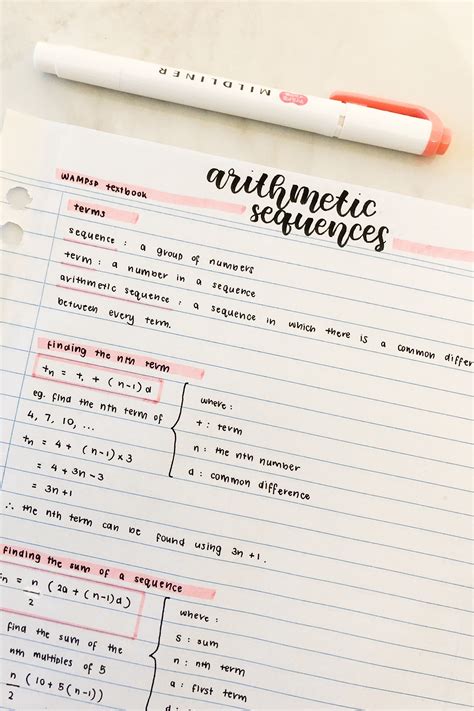 MILDLINER
arithmetic
sequences
WAMPSP textbook
terms
sequence : a group of numbers
term : a number in a sequence
arithmetic sequence : a sequence in which there is a common differ
between every term.
finding the nth term
tn = t, + (n-1)d
eg. find the nth term of
4, 7, 10, ...
tn = 4 + (n-1) x 3
= 4 + 3n - 3
= 3n + 1
where :
t : term
n : the nth number
d : common difference
∴ the nth term can be found using 3n + 1.
finding the sum of a sequence
n = n/2 (2a + (n-1)d)
find the sum of the
nth multiples of 5
n/2 (10 + 5(n-1))
where :
S : sum
n : nth term
a : first term